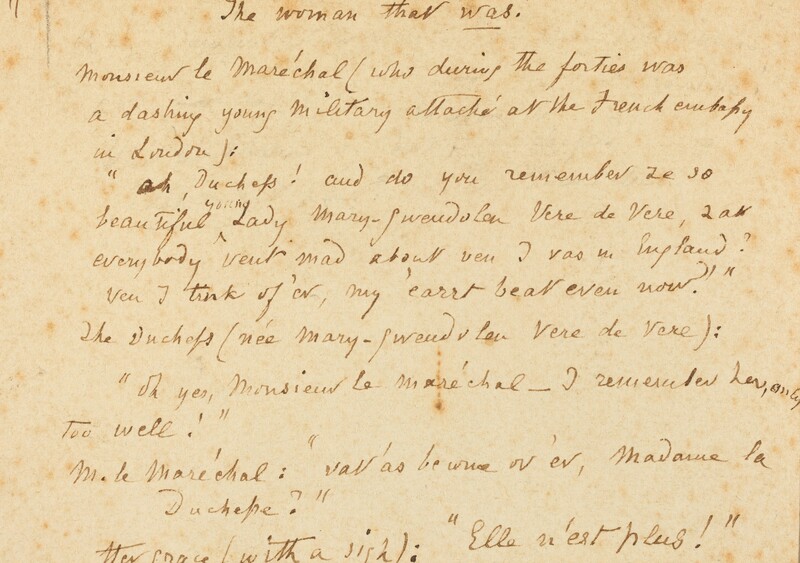 The woman that was.
Monsieur le Maréchal (who during the forties was
a dashing young military attaché at the French embassy
in London):
"Ah, Duchess! and do you remember ze so
beautiful young Lady Mary-Gwendolen Vere de Vere, zat
everybody vent mad about ven I vas in England?
ven I tink of 'er, my 'earrt beat even now!"
The Duchess (née Mary-Gwendolen Vere de Vere):
"Oh yes, Monsieur le Maréchal — I remember her, only
too well!"
M. le Maréchal: "vat 'as become ov 'er, Madame la
Duchesse?"
Her Grace (with a sigh): "Elle n'est plus!"